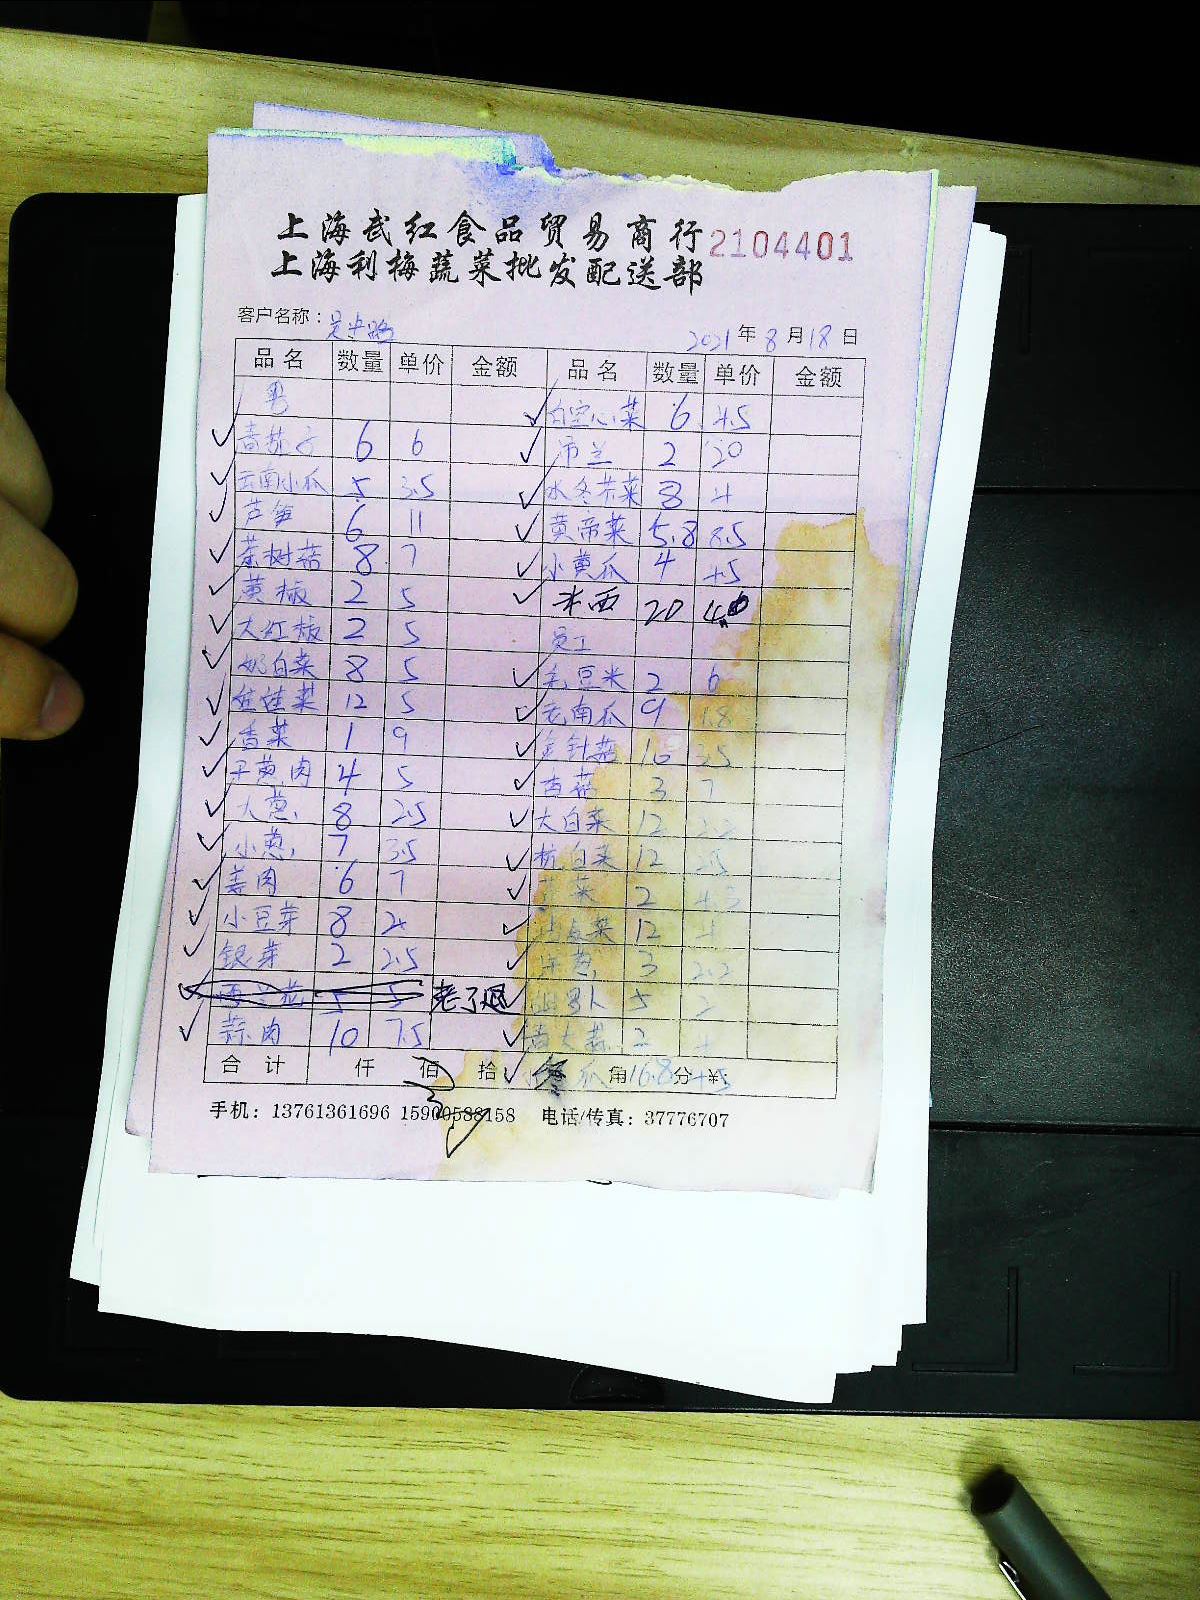 上海武红食品贸易商行
上海利梅蔬菜批发配送部 2104401
客户名称：吴中路 2021年8月18日
品名 数量 单价 金额 品名 数量 单价 金额
白空心菜 6 4.5
青茄子 6 6 吊兰 2 20
云南小瓜 5 3.5 水冬芥菜 8 4
芦笋 6 11 黄帝菜 5.8 8.5
茶树菇 8 7 小黄瓜 4 4.5
黄椒 2 5 米西 20
大红椒 2 5 员工
奶白菜 8 5 毛豆米 2 6
娃娃菜 12 5 老南瓜 9 1.8
香菜 1 9 金针菇 3.5
子黄肉 4 5 香菇 3 7
大葱 8 2.5 大白菜 12
小葱 7 3.5 杭白菜 12
姜肉 6 7 菜 2
小豆芽 8 2 菜 12
银芽 2 2.5 洋葱 3 2.2
5 5 老了退 5
蒜肉 10 7.5 2
合计 仟 佰 拾 冬瓜 角 16.8 分 ¥
手机：13761361696 15900588158 电话/传真：37776707